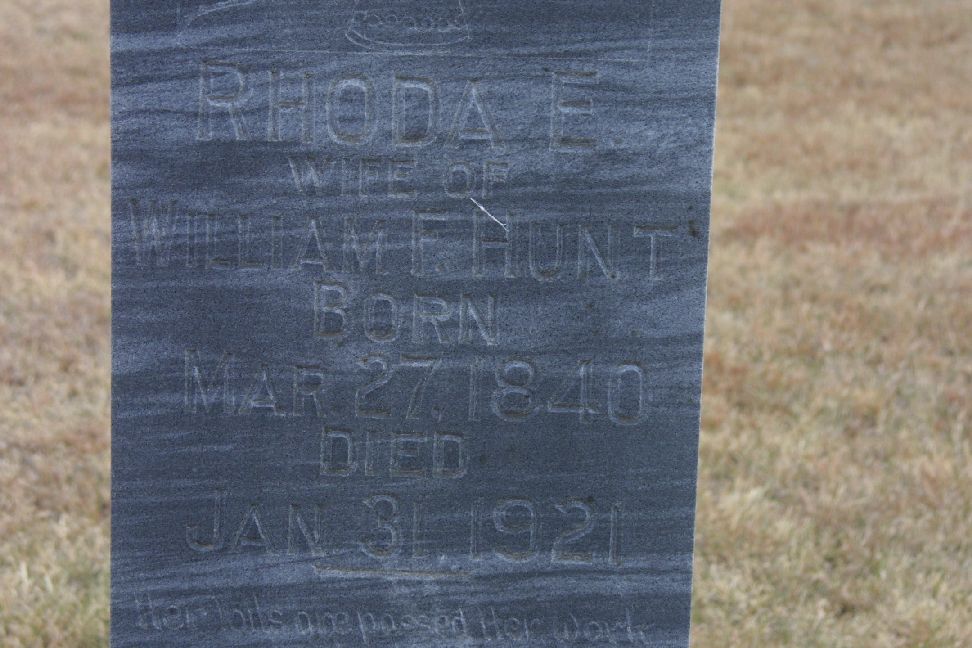 RHODA E.
WIFE OF
WILLIAM F. HUNT
BORN
MAR. 27, 1840
DIED
JAN. 31. 1921
Her Toils are passed Her work